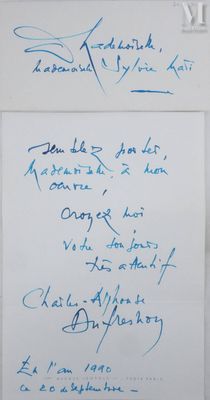 M
MILLON
Mademoiselle,
Mademoiselle Sylvie
portez,
Mademoiselle à mon
œuvre,
Croyez moi,
Votre toujours
très attentif
Charles-Alphonse
Dufresnoy
En l'an 1990
ce 20 de Septembre –